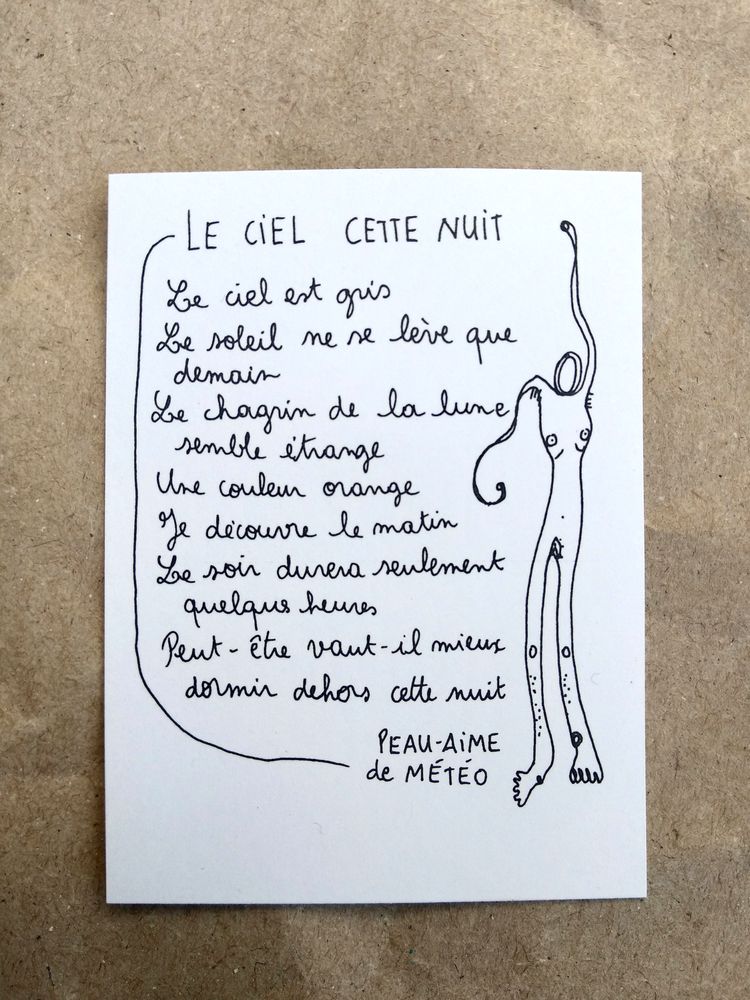 LE CIEL CETTE NUIT
Le ciel est gris
Le soleil ne se lève que
demain
Le chagrin de la lune
semble étrange
Une couleur orange
Je découvre le matin
Le soir durera seulement
quelques heures
Peut-être vaut-il mieux
dormir dehors cette nuit
PEAU-AIME
de MÉTÉO